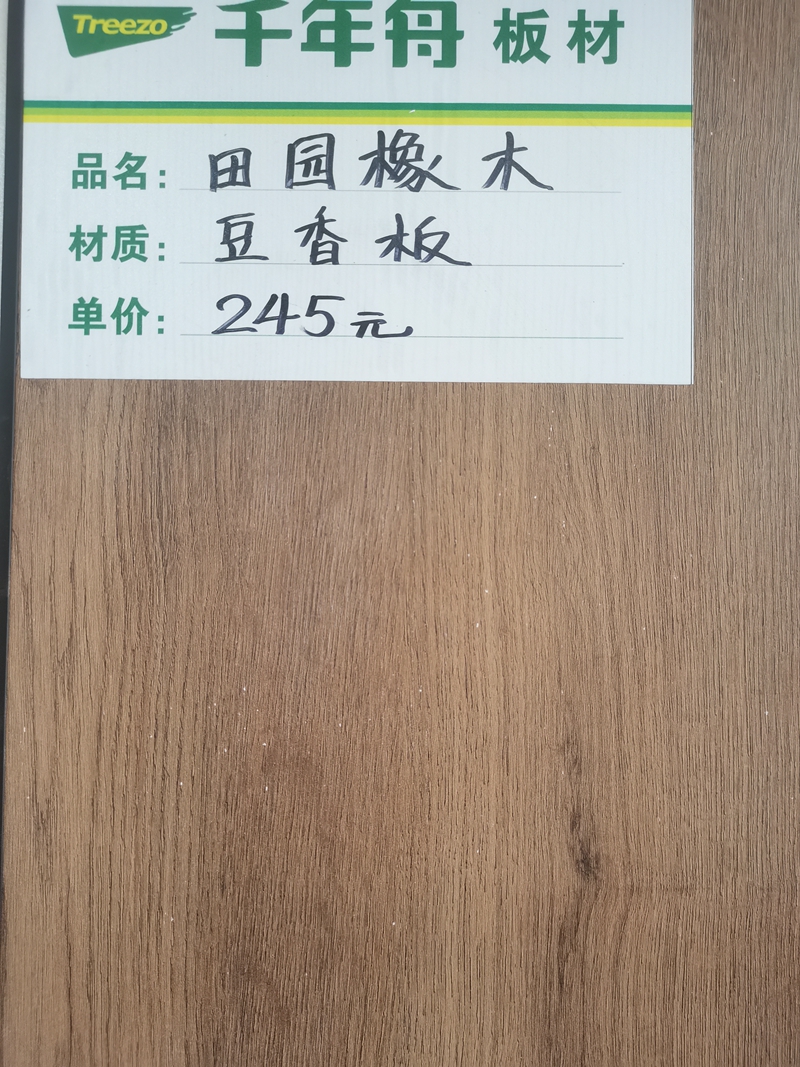 Treezo 千年舟 板材
品名: 田园橡木
材质: 豆香板
单价: 245元